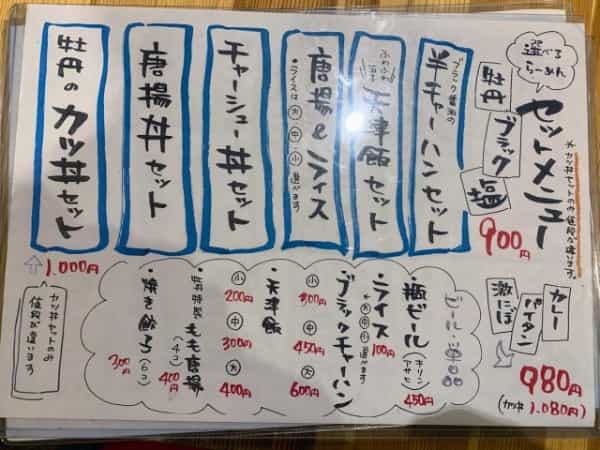 選べる
らーめん
セットメニュー
*カツ丼セットのみ値段が違います。
牡丹
ブラック
塩
900円
ブラック醤油の
半チャーハンセット
ふわふわ
天津飯セット
唐揚&ライス
・ライスは大・中・小選べます
チャーシュー丼セット
唐揚丼セット
牡丹のカツ丼セット
1.000円
カツ丼セットのみ
値段が違います
カレー
パイタン
激にぼ
980円
(カツ丼 1.080円)
ビール・単品
・瓶ビール(キリン
アサヒ)
450円
・ライス 100円
*大・中・小選べます
・ブラックチャーハン
小
300円
中
450円
大
600円
・天津飯
小
200円
中
300円
大
400円
・牡丹特製もも唐揚
(4コ)
400円
・焼き餃子(6コ)
300円